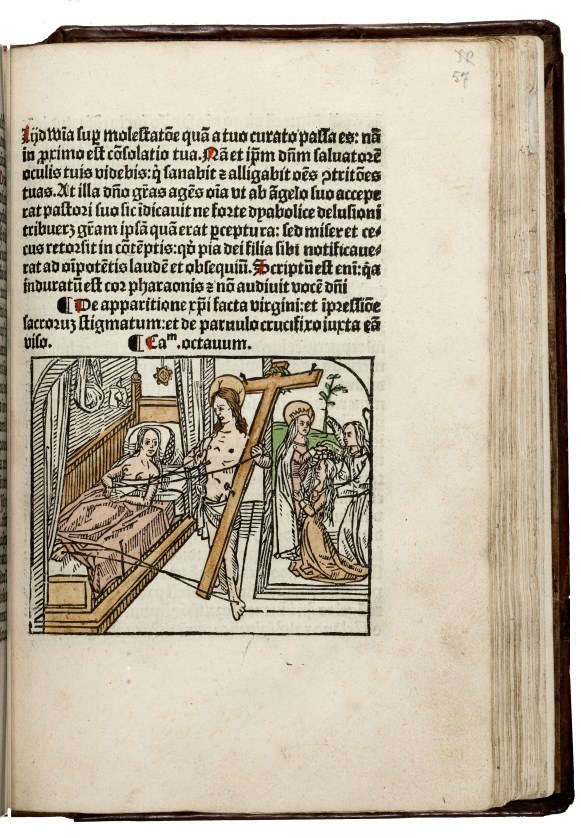 57
Lijdwia sup molestatōe quā a tuo curato passa es: nā
in ꝓximo est cōsolatio tua. Nā et ip̄m dn̄m saluatorē
oculis tuis videbis: q̇ sanabit ⁊ alligabit oēs ꝯtritōes
tuas. At illa dn̄o gr̄as agēs oīa vt ab āgelo suo accepe
rat pastori suo sic īdicauit ne forte dyabolice delusioni
tribuerꝫ gr̄am ipsā quā erat ꝑceptura: sed miser et ce⸗
cus retorsit in cōtēptis: qḋ pia dei filia sibi notificaue⸗
rat ad oīpotētis laudē et obsequiū. Scriptū est enī: q̇a
induratū est cor pharaonis ⁊ nō audiuit vocē dn̄i
¶ De apparitione xp̄i facta virgini: et īpressiōe
sacroruꝫ stigmatum: et de paruulo crucifixo iuxta eā
viso. ¶ Caᵐ. octauum.